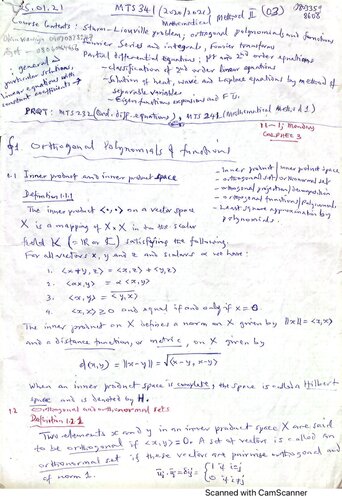 25.01.21
MTS 341 (2020/2021)
Mathematical Method II (03)
Course Contents: Sturm-Liouville problem; orthogonal polynomials and functions
Fourier Series and integrals, Fourier transforms
Partial differential equations; 1st and 2nd order equations
general &
particular solutions,
linear equations with
constant coefficients →
- classification of 2nd order linear equations
- Solution of heat, wave and Laplace equations by method of
separable variables
- Eigenfunctions expansions and F T's.
PRQT: MTS 232 (Ord. diff. equations), MTS 241 (Mathematical Methods I)
11-1 Monday
§1 Orthogonal Polynomials & functions
1.1 Inner product and inner product space
- Inner product / inner product space
- orthogonal set/orthonormal set
- orthogonal projection/decomposition
- orthogonal functions/polynomials
- Least square approximation by
polynomials.
Definition 1.1.1
The inner product <·,·> on a vector space
X is a mapping of X×X in to the scalar
field K (= ℝ or ℂ) satisfying the following.
For all vectors x, y and z and scalars α we have:
1. <x+y, z> = <x,z> + <y,z>
2. <αx,y> = α <x,y>
3. <x,y> = \overline{<y,x>}
4. <x,x> ≥ 0 and equal if and only if x = 0.
The inner product on X defines a norm on X given by ||x|| = <x,x>
and a distance function, or metric, on X given by
d(x,y) = ||x-y|| = √<x-y, x-y>
When an inner product space is complete, the space is called a Hilbert
space and is denoted by H.
1.2 Orthogonal and orthonormal sets
Definition 1.2.1
Two elements x and y in an inner product space X are said
to be orthogonal if <x,y> = 0. A set of vector is called an
orthonormal set if these vectors are pairwise orthogonal and
of norm 1.
ui·uj = δij = { 1 if i=j
0 if i≠j
Scanned with CamScanner